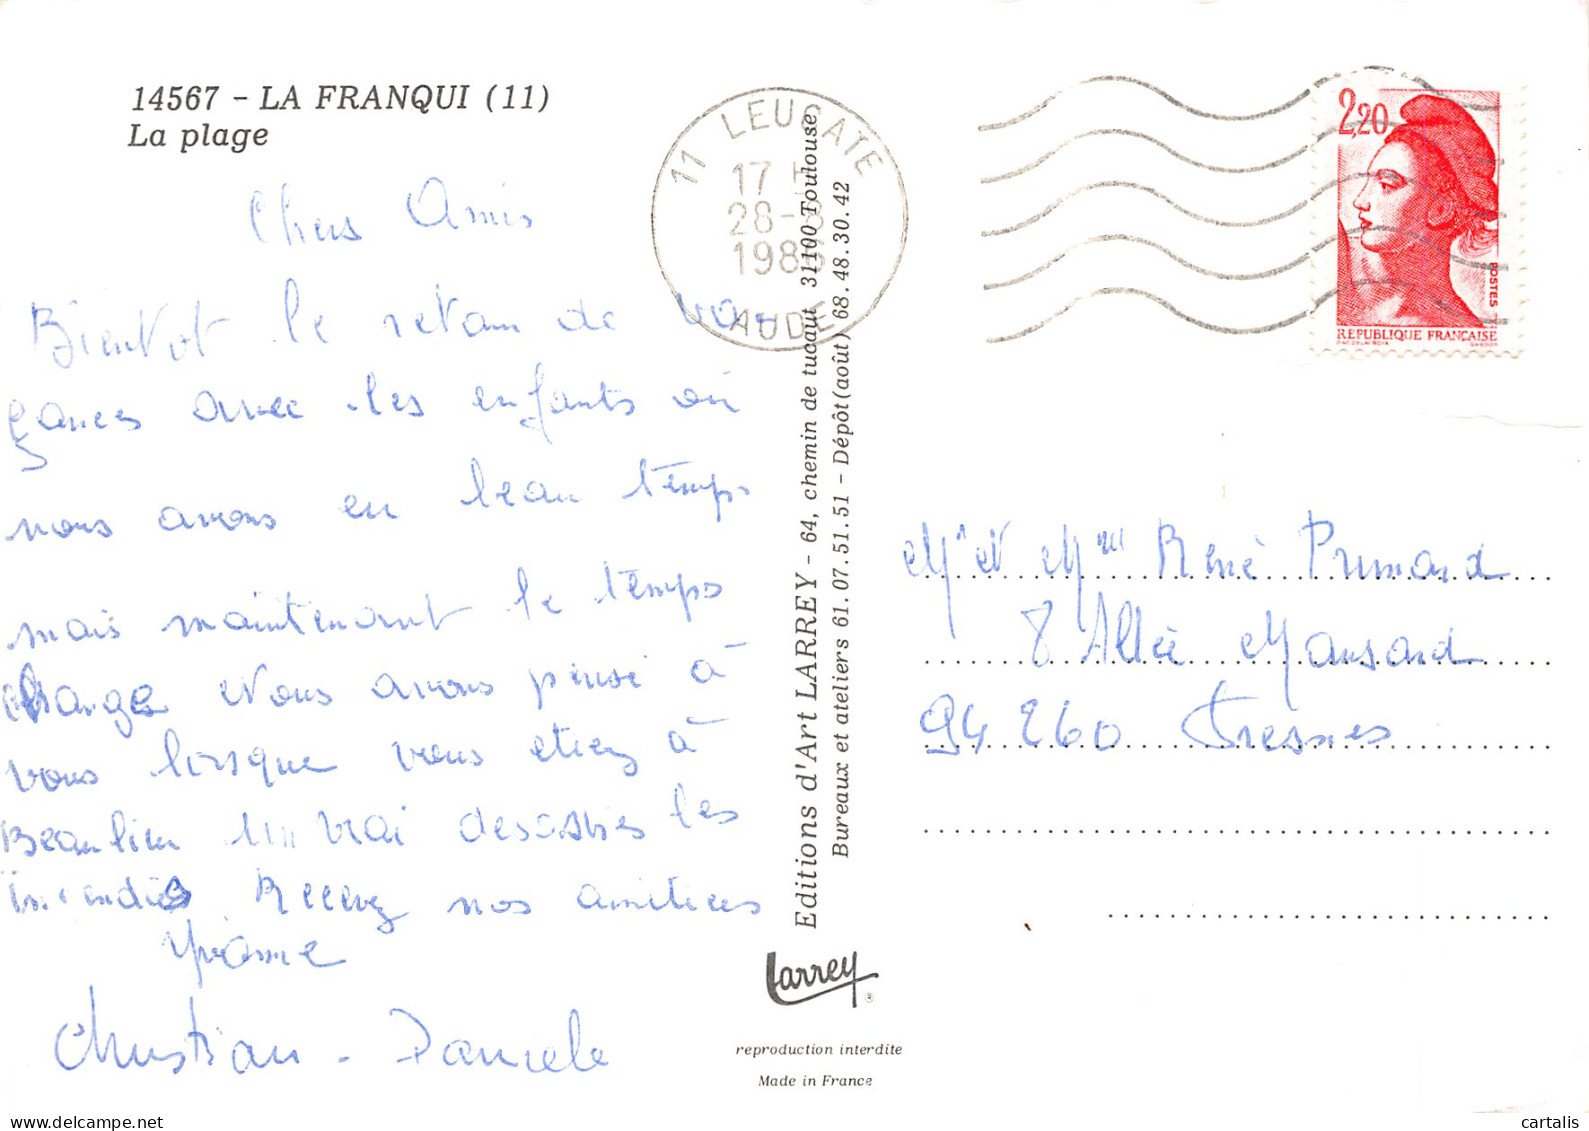 14567 - LA FRANQUI (11)
La plage
Chers Amis
Bientot le retour de va-
cances avec les enfants où
nous avons eu beau temps
mais maintenant le temps
change Nous avons pensé à
vous lorsque vous etiez à
Beaulieu un vrai desastres les
incendies Recevez nos amitiees
Yvonne
Christian - Daniele
11 LEUCATE
17 H
28 - 8
1986
AUDE
Editions d'Art LARREY - 64, chemin de tucaut 31100 Toulouse
Bureaux et ateliers 61.07.51.51 - Dépôt (août) 68.48.30.42
Larrey
®
reproduction interdite
Made in France
2,20
POSTES
REPUBLIQUE FRANÇAISE
Mr et Mme René Prunard
8 Allée Mansard
94260 Fresnes
cartalis